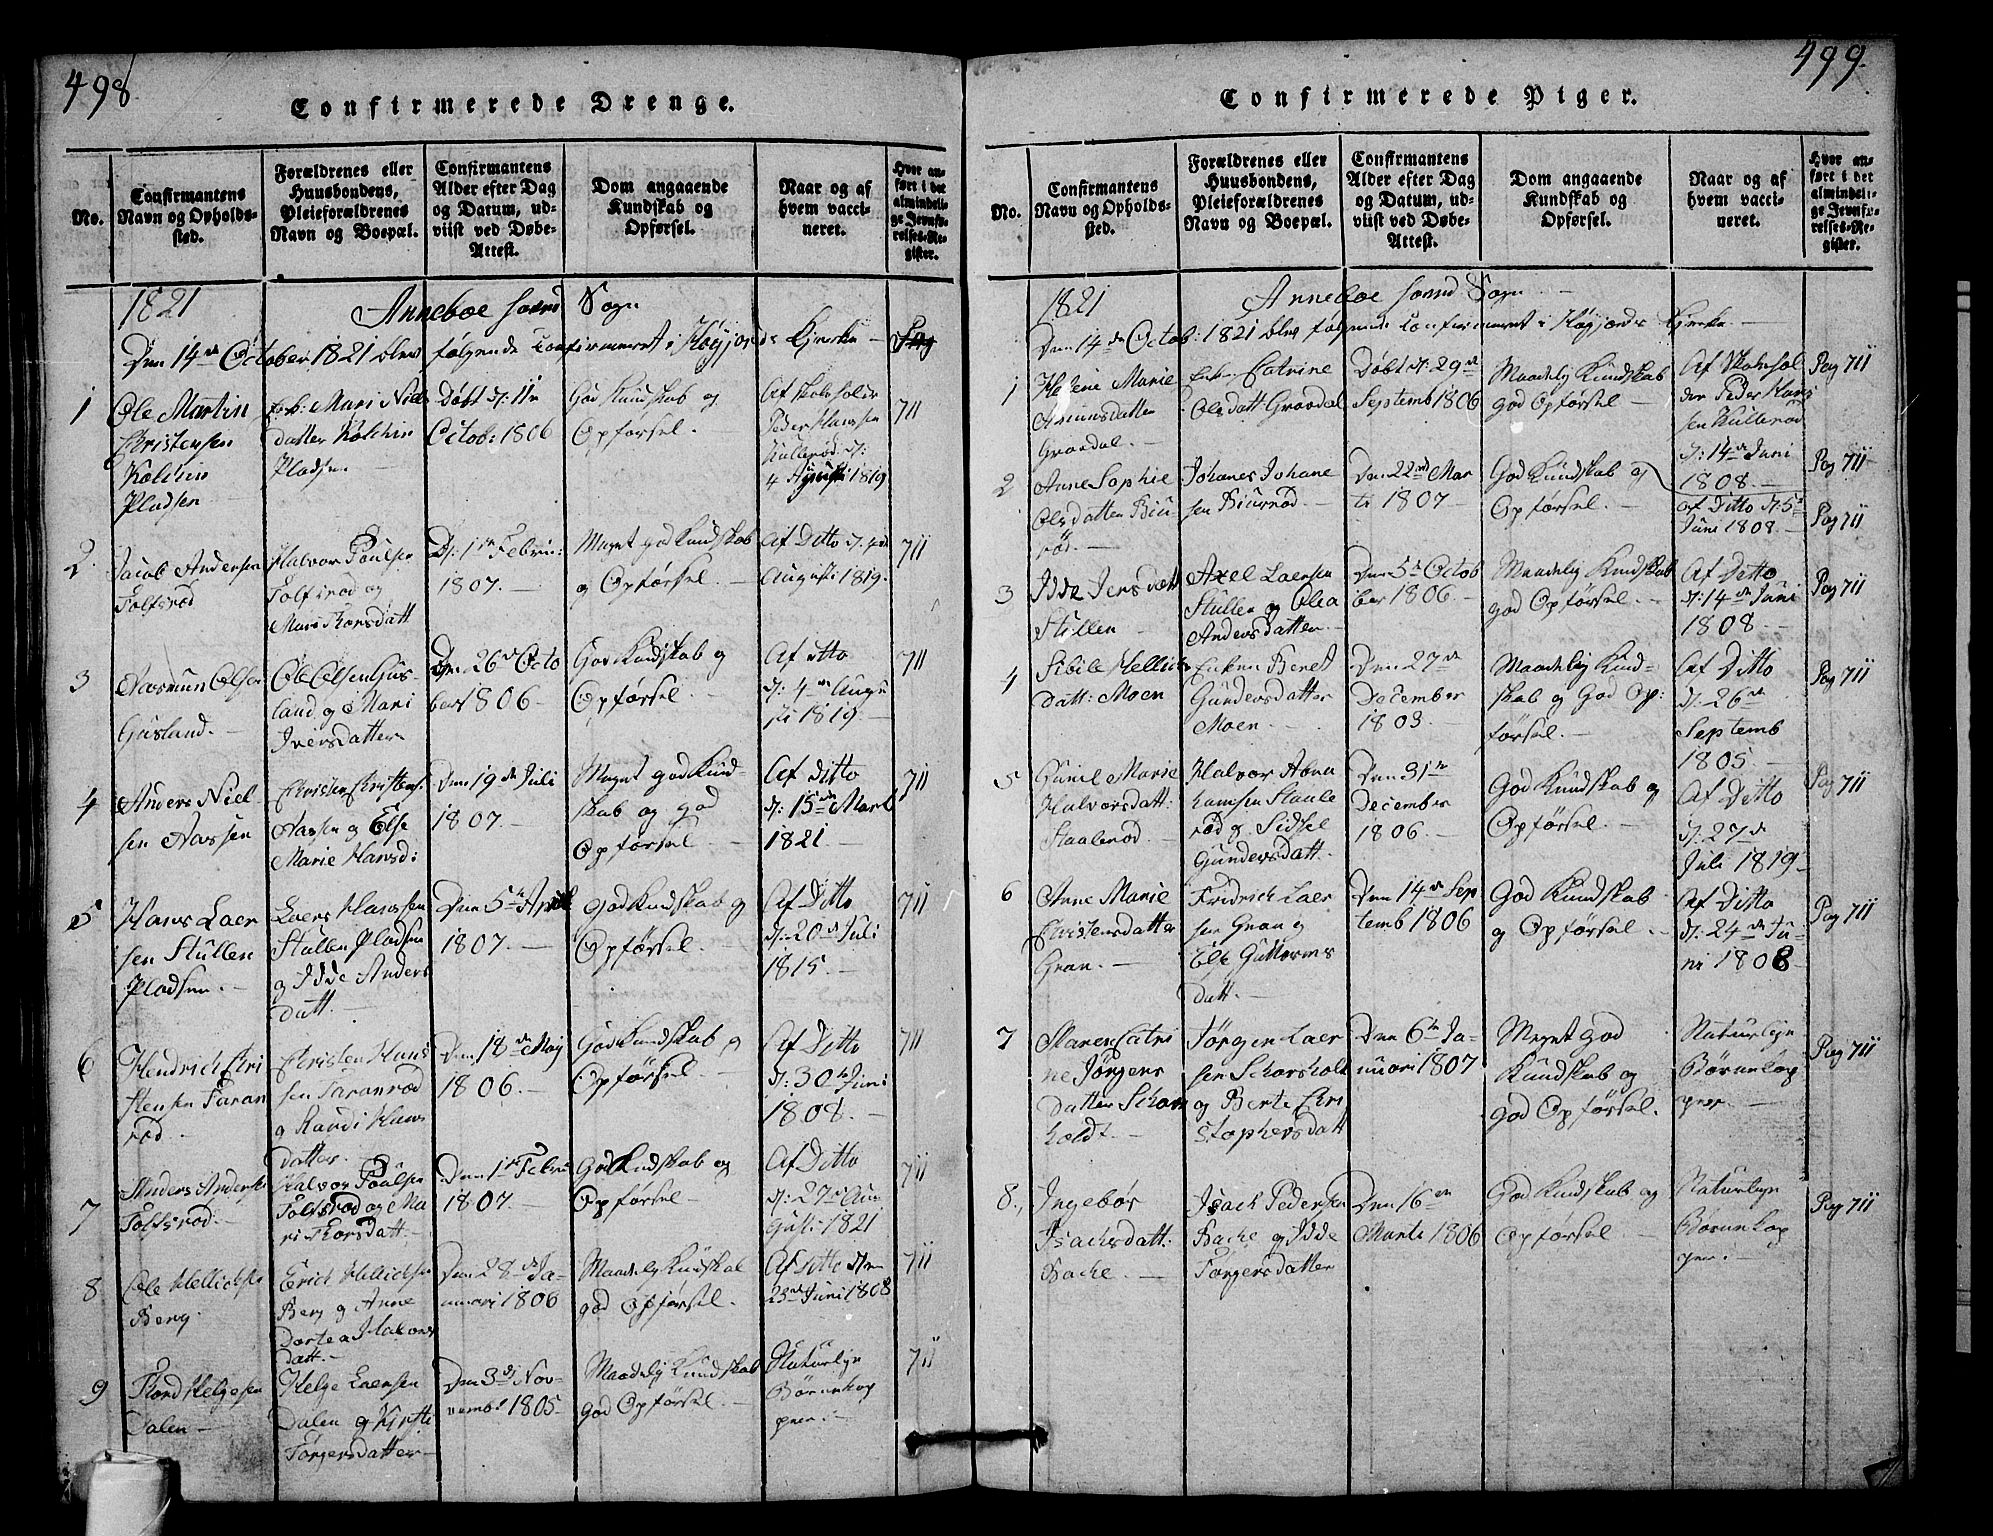 498
Confirmerede Drenge.
No.
Confirmantens
Navn og Opholds-
sted.
Forældrenes eller
Huusbondens,
Pleieforældrenes
Navn og Boepæl.
Confirmantens
Alder efter Dag
og Datum, ud-
viist ved Døbe-
Attest.
Dom angaaende
Kundskab og
Opførsel.
Naar og af
hvem vacci-
neret.
Hvor an-
ført i det
almindeli-
ge Jevnfø-
relses-Re-
gister.
1821 Anneboe Sogn
Den 14de October 1821 blev følgende Confirmeret i Kirke
1
Ole Martin
Christensen
Kolchin
Pladsen
Enk: Mari Niels
datter Kolchin
Pladsen
Døbt d: 11te
Octob: 1806
God Kundskab og
Opførsel.
Af Skoleholder
Peder Hansen
Kullerød d:
4 August 1819
711
2
Jacob Andersen
Tolfsrød
Halvor Poulsen
Tolfsrød og
Mari Thorsdatt
D: 1te Febru:
1807.
Meget god Kundskab
og Opførsel
Af Ditto d: 4de
Augusti 1819.
711
3
Aasmun Olsen
Guslund.
Ole Olsen Gus-
lund og Mari
Iversdatter
Den 26de Octo
ber 1806.
God Kundskab og
Opførsel
Af ditto
d: 4de Augu
sti 1819.
711
4
Anders Niel
sen Aassen
Christen Christens:
Aassen og Else
Marie Hansd:
Den 19de Juli
1807.
Meget god Kund-
skab og god
Opførsel
Af ditto
d: 15de Marti
1821.
711
5
Hans Laer
sen Stullen
Pladsen.
Laers Hansen
Stullen Pladsen
og Idde Anders
datt.
Den 5te April
1807.
God Kundskab og
Opførsel.
Af Ditto
d: 20de Juli
1815.
711
6
Hendrich Chri
stensen Faran
rød
Christen Hans
sen Faranrød
og Randi Hans
datter.
Den 18de Maj
1806.
God Kundskab og
Opførsel.
Af Ditto
d: 30te Juni
1808.
711
7
Anders Andersen
Tolfsrød.
Halvor Poulsen
Tolfsrød og Ma
ri Thorsdatt
Den 1te Febru
1807.
God Kundskab og
Opførsel
Af Ditto
d: 27de Au
gusti 1821
711
8
Ole Hellichsen
Berg.
Erich Hellichsen
Berg og Anne
Dortea Halvors
datt.
Den 28de Ja-
nuari 1806
Maadelig Kundskab
god Opførsel.
Af Ditto den
23de Juni 1808
711
9
Thord Helgesen
Dalen
Helge Laersen
Dalen og Kirsti
Jørgensdatter
Den 3de Nov-
vemb: 1805.
Maadelig Kundskab
god Opførsel.
Naturlige
Børnekop
per.
711
499.
Confirmerede Piger.
No.
Confirmantens
Navn og Opholds-
sted.
Forældrenes eller
Huusbondens,
Pleieforældrenes
Navn og Boepæl.
Confirmantens
Alder efter Dag
og Datum, ud-
viist ved Døbe-
Attest.
Dom angaaende
Kundskab og
Opførsel.
Naar og af
hvem vacci-
neret.
Hvor an-
ført i det
almindeli-
ge Jevnfø-
relses-Re-
gister.
1821 Anneboe Sogn
Den 14de Octob: 1821 blev følgende Confirmeret i Kirke
1
Helene Marie
Amunsdatter
Gravdal.
Enke Catrine
Olsdatt Gravdal
Døbt d: 29de
Septemb 1806
Maadelig Kundskab
god Opførsel
Af Skolehol
der Peder Han
sen Kullerød
d: 14de Juni
1808.
Pag 711
2
Anne Sophie
Olsdatter Biu
rød.
Johanes Johane
sen Biurrød
Den 22nd Mar
ti 1807
God Kundskab og
Opførsel.
af Ditto d: 5te
Juni 1808.
Pag 711
Pag 711
3
Idde Jensdatt
Stullen
Axel Laersen
Stullen og Olea
Andersdatter
Den 5te Octob
ber 1806.
Maadelig Kundskab
god Opførsel.
Af Ditto
d: 14de Juni
1808.
Pag 711
4
Sibile Hellichs
datt: Moen
Enken Beret
Gundersdatter
Moen
Den 27de
December
1803
Maadelig Kund-
skab og God Op:
førsel.
Af Ditto
d: 26de
Septemb
1805.
Pag 711
5
Gunil Marie
Halvorsdatt:
Staalerød
Halvor Abra
hamsen Staale
rød og Sidsel
Gundersdatt.
Den 31te
December
1806.
God Kundskab og
Opførsel.
Af Ditto
d: 27de
Juli 1819
Pag 711
6
Anne Marie
Christensdatter
Gran.
Fridrich Laer
sen Gran og
Else Guttorms
datt.
Den 14de Sep
temb 1806
God Kundskab
og Opførsel.
Af Ditto
d: 24de Ju-
ni 1808
Pag 711
7
Maren Catri
ne Jørgens
datter Schors
holdt.
Jørgen Laer
sen Schorsholt
og Berte Chri
stophersdatt
Den 6te Ja-
nuari 1807
Meget god
Kundskab og
god Opførsel.
Naturlige
Børnekop
per.
Pag 711
8.
Ingebør
Isachsdatt:
Bache.
Isach Pedersen
Bache og Idde
Jørgensdatter
Den 16de
Marti 1806
God Kundskab og
Opførsel
Naturlige
Børnekop
per.
Pag 711